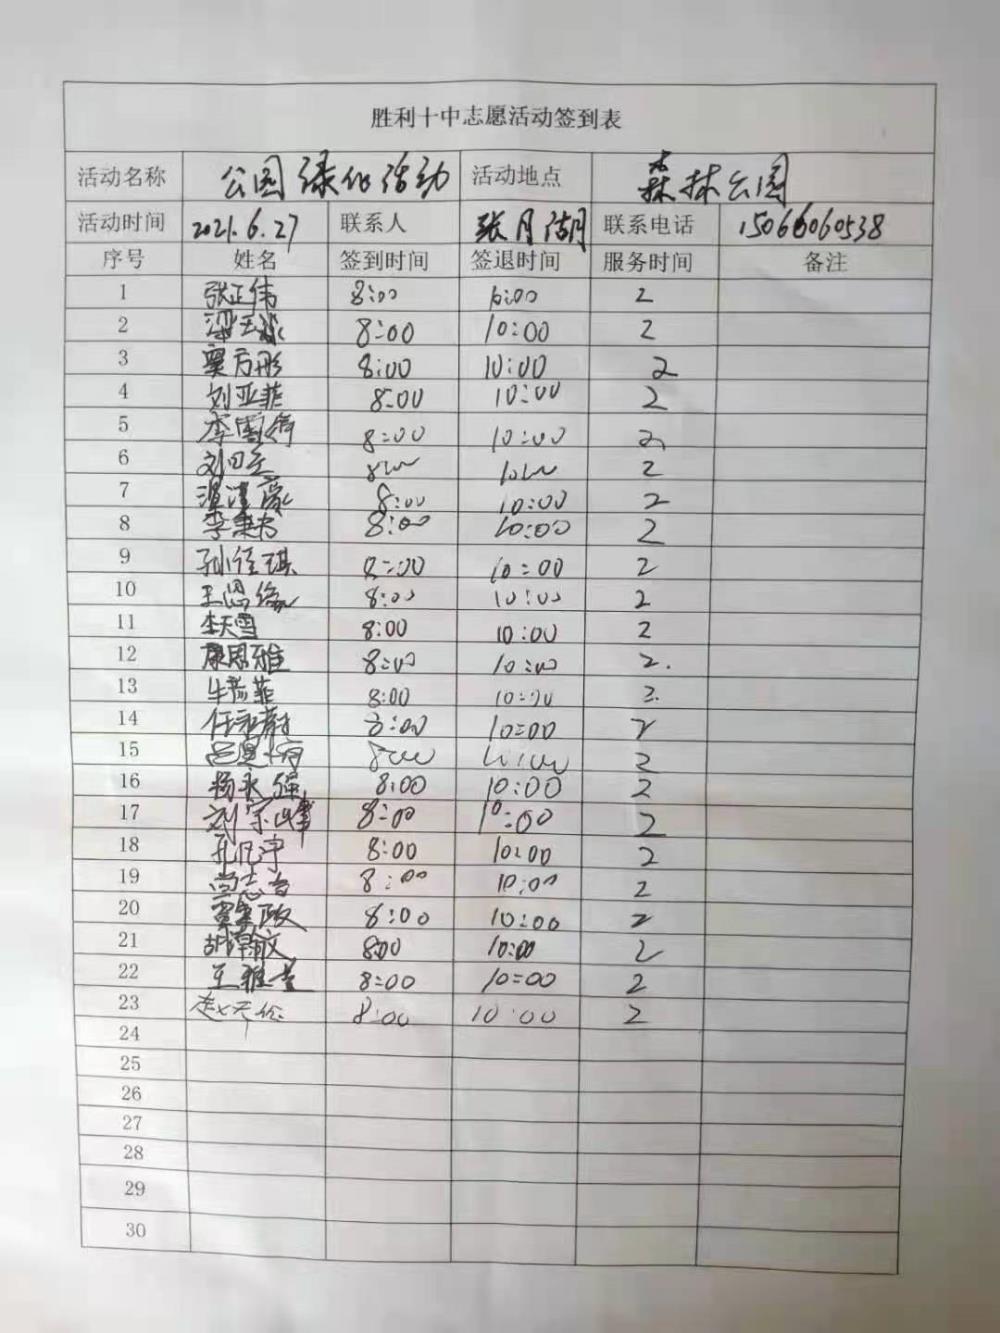 胜利十中志愿活动签到表
活动名称 公园绿化活动 活动地点 森林公园
活动时间 2021.6.27 联系人 张月湖 联系电话 15066060538
序号 姓名 签到时间 签退时间 服务时间 备注
1 张正伟 8:00 10:00 2
2 8:00 10:00 2
3 窦方彤 8:00 10:00 2
4 刘亚菲 8:00 10:00 2
5 8:00 10:00 2
6 8:00 10:00 2
7 8:00 10:00 2
8 李秉书 8:00 10:00 2
9 孙佳琪 8:00 10:00 2
10 8:00 10:00 2
11 李天雪 8:00 10:00 2
12 康恩雅 8:00 10:00 2.
13 牛蕊菲 8:00 10:00 2.
14 任永蔚 8:00 10:00 2
15 8:00 10:00 2
16 杨永强 8:00 10:00 2
17 刘宗峰 8:00 10:00 2
18 孔凡宇 8:00 10:00 2
19 8:00 10:00 2
20 8:00 10:00 2
21 胡瀚文 8:00 10:00 2
22 8:00 10:00 2
23 赵天伦 8:00 10:00 2
24
25
26
27
28
29
30